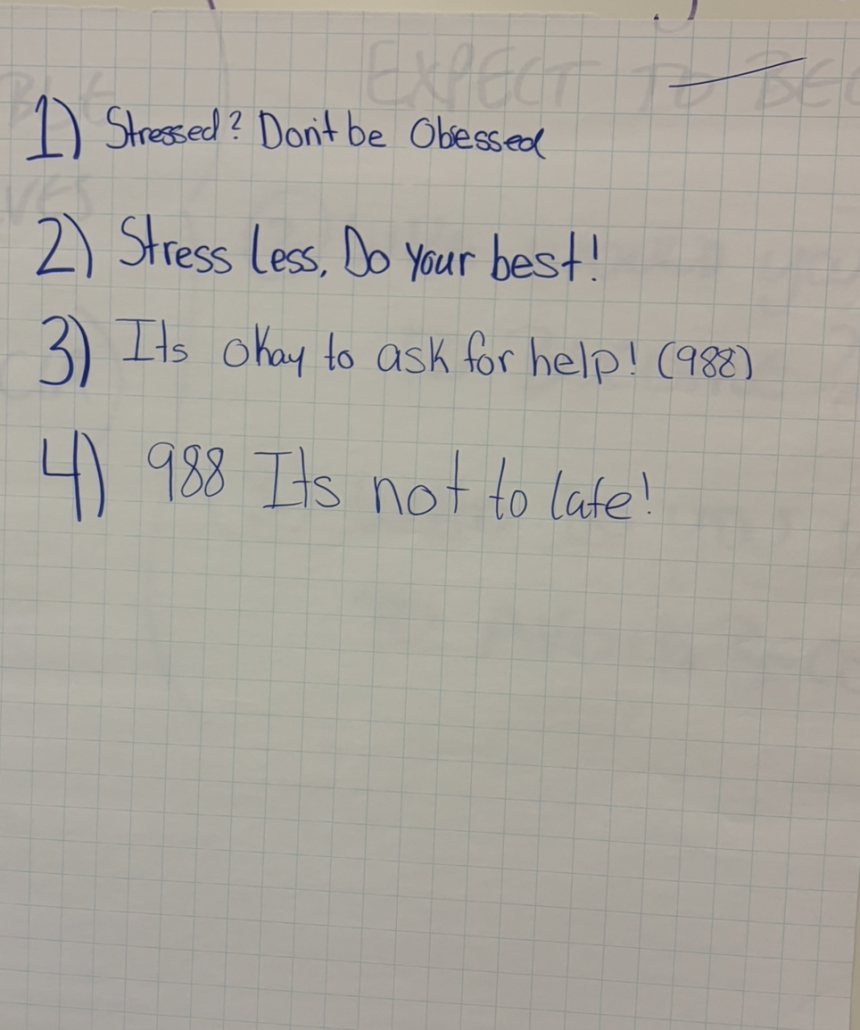 EXPECT TO BE
1) Stressed? Don't be Obsessed
2) Stress less, Do your best!
3) Its okay to ask for help! (988)
4) 988 Its not to late!